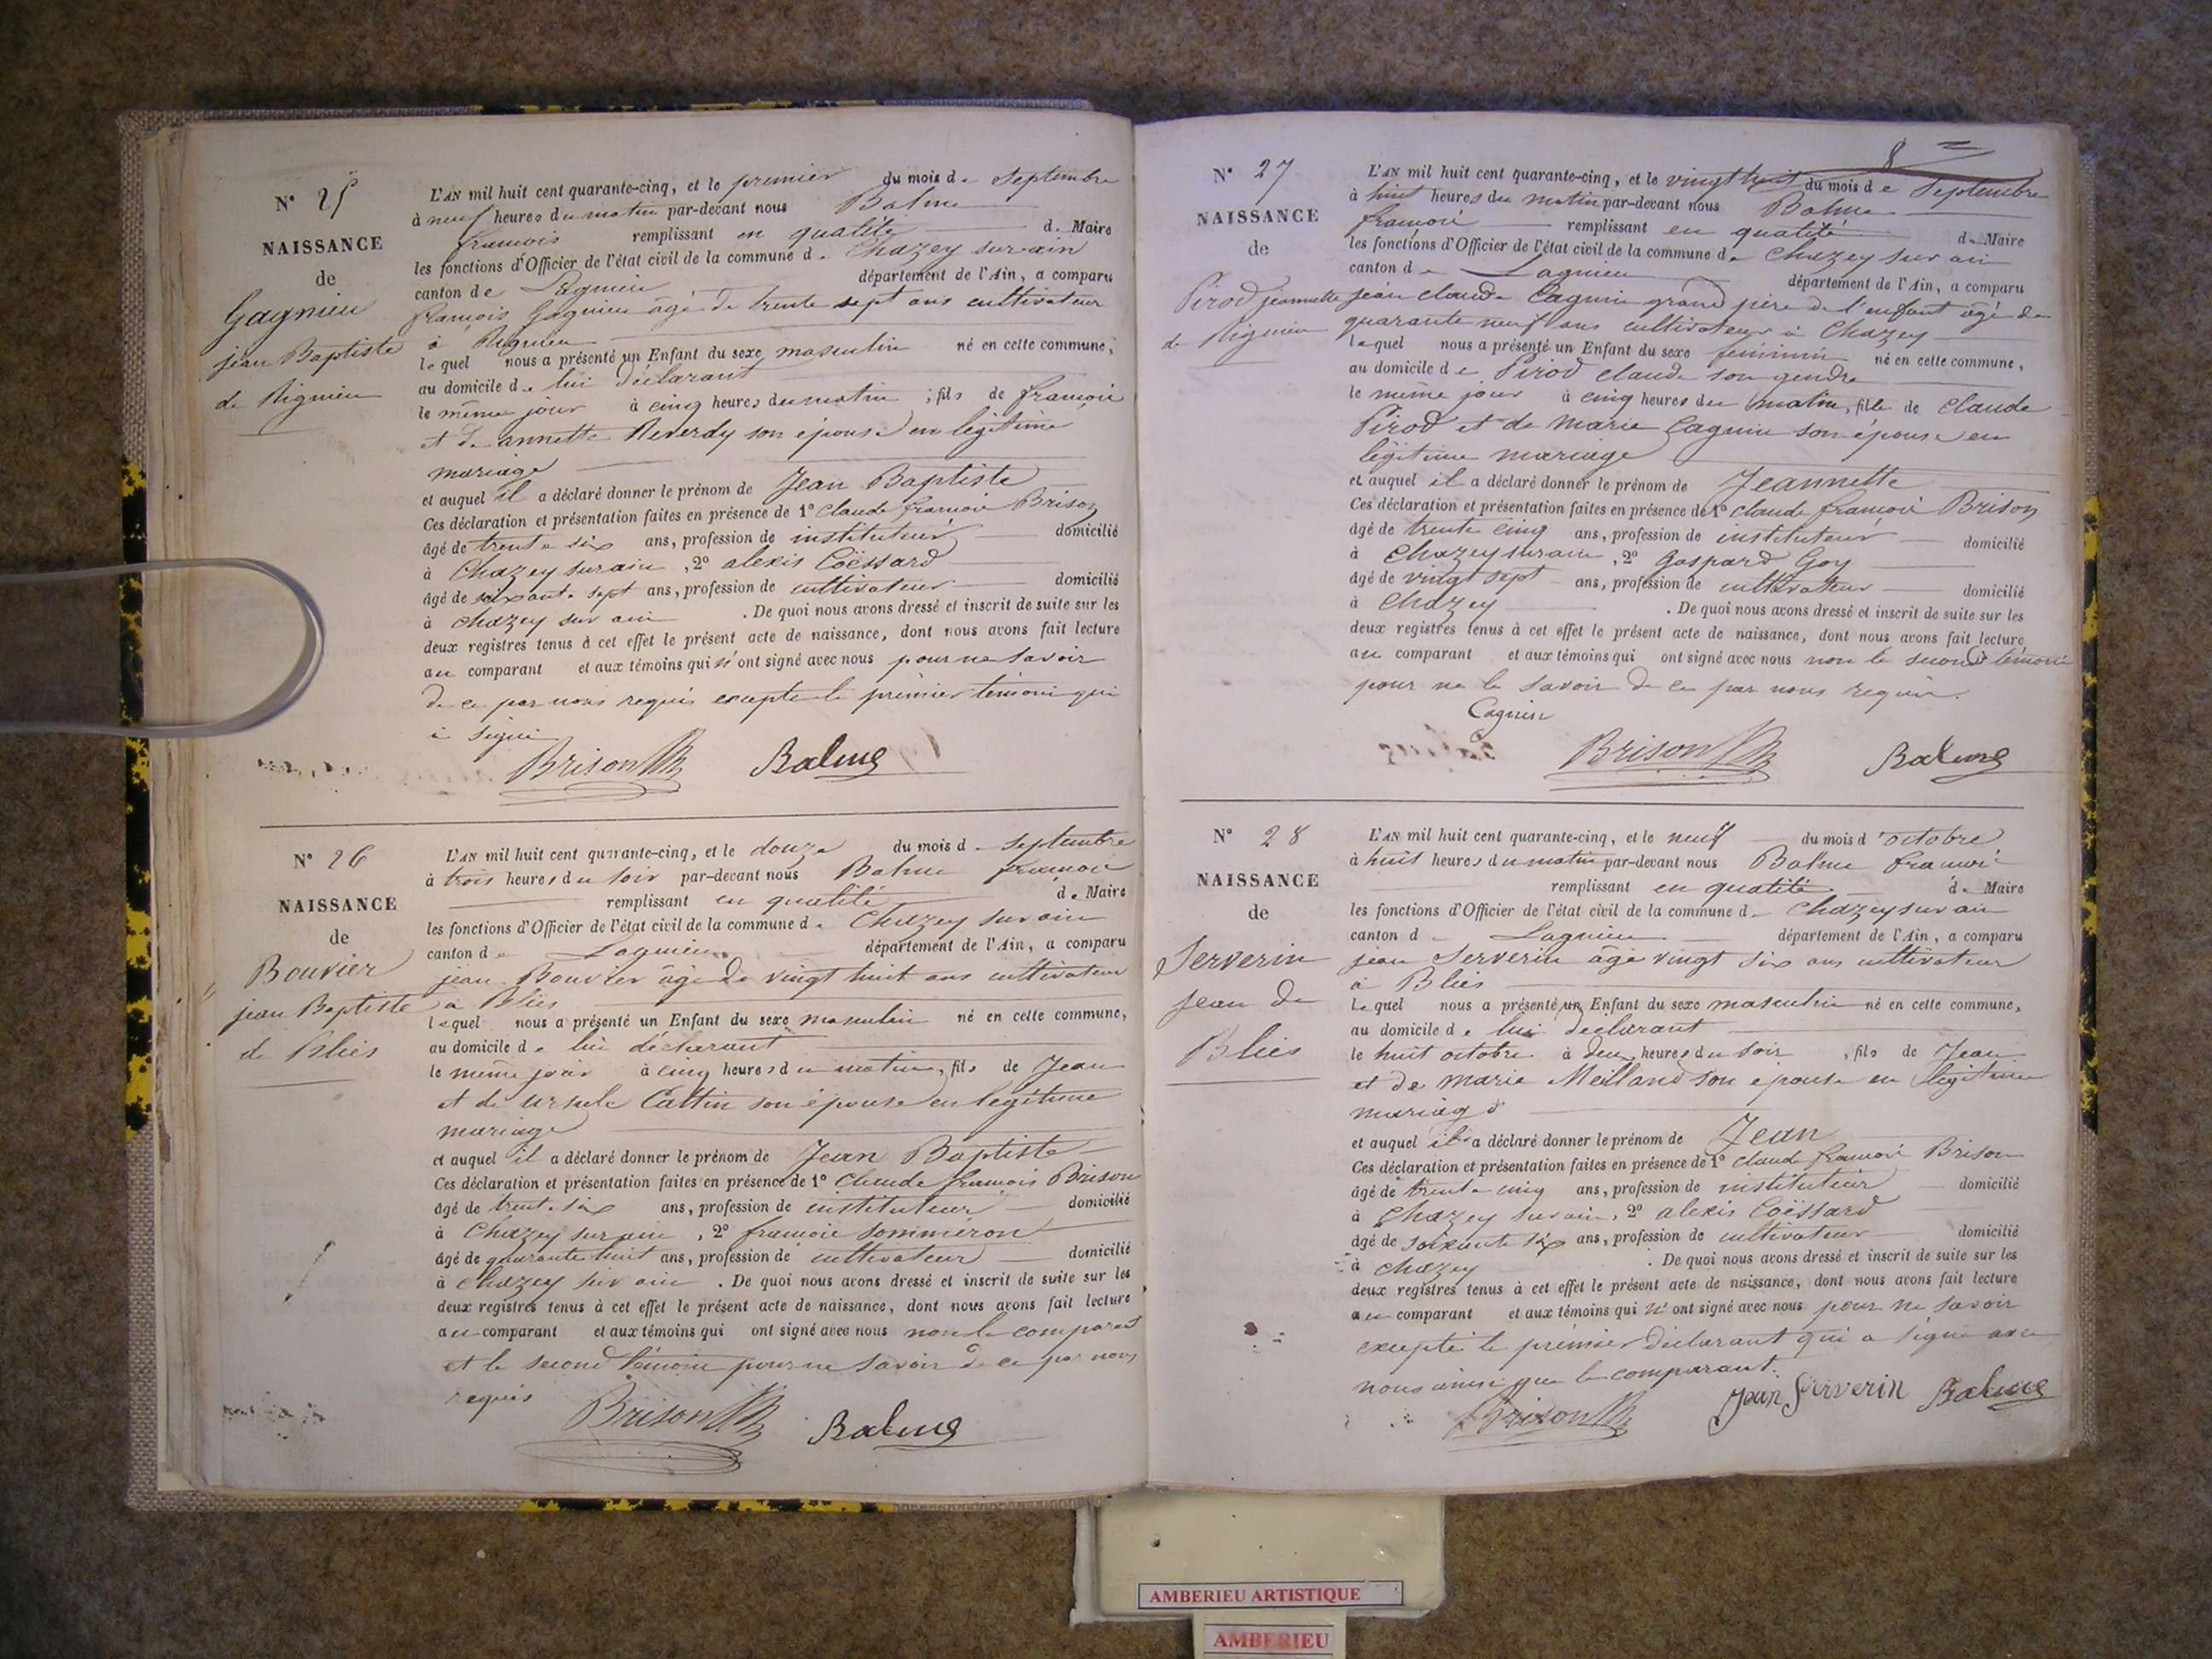 N° 25
NAISSANCE
de
Gagnieu
jean Baptiste
de Rignieu
L'AN mil huit cent quarante-cinq, et le premier du mois de Septembre
à neuf heures du matin par-devant nous Balme
francois remplissant en qualité de Maire
les fonctions d'Officier de l'état civil de la commune de Chazey sur ain
canton de Lagnieu département de l'Ain, a comparu
francois Gagnieu âgé de trente sept ans cultivateur
à Rignieu
lequel nous a présenté un Enfant du sexe masculin né en cette commune,
au domicile de lui déclarant
le même jour à cinq heures du matin ; fils de francois
et de annette Reverdy son épouse en legitime
mariage
et auquel il a déclaré donner le prénom de Jean Baptiste
Ces déclaration et présentation faites en présence de 1° Claude francois Brison
âgé de trente six ans, profession de instituteur domicilié
à Chazey sur ain, 2° alexis Coëssard
âgé de soixante sept ans, profession de cultivateur domicilié
à chazey sur ain . De quoi nous avons dressé et inscrit de suite sur les
deux registres tenus à cet effet le présent acte de naissance, dont nous avons fait lecture
au comparant et aux témoins qui n'ont signé avec nous pour ne savoir
de ce par nous requis excepté le premier témoin qui
a signé
Brison Balme
N° 26
NAISSANCE
de
Bouvier
jean Baptiste
de Blies
L'AN mil huit cent quarante-cinq, et le douze du mois de Septembre
à trois heures du soir par-devant nous Balme francois
remplissant en qualité de Maire
les fonctions d'Officier de l'état civil de la commune de Chazey sur ain
canton de Lagnieu département de l'Ain, a comparu
jean Bouvier âgé de vingt huit ans cultivateur
a Blies
lequel nous a présenté un Enfant du sexe masculin né en cette commune,
au domicile de lui déclarant
le même jour à cinq heures du matin, fils de Jean
et de ursule Cattin son épouse en legitime
mariage
et auquel il a déclaré donner le prénom de Jean Baptiste
Ces déclaration et présentation faites en présence de 1° Claude francois Brison
âgé de trente six ans, profession de instituteur domicilié
à Chazey sur ain, 2° francois Sommeron
âgé de quarante huit ans, profession de cultivateur domicilié
à Chazey sur ain . De quoi nous avons dressé et inscrit de suite sur les
deux registres tenus à cet effet le présent acte de naissance, dont nous avons fait lecture
au comparant et aux témoins qui ont signé avec nous non le comparant
et le second témoin pour ne savoir de ce par nous
requis
Brison Balme
8
N° 27
NAISSANCE
de
Pirod jeannette
de Rignieu
L'AN mil huit cent quarante-cinq, et le vingt huit du mois de Septembre
à huit heures du matin par-devant nous Balme
francois remplissant en qualité de Maire
les fonctions d'Officier de l'état civil de la commune de Chazey sur ain
canton de Lagnieu département de l'Ain, a comparu
jean claude Cagnin grand père de l'enfant âgé de
quarante neuf ans cultivateur à Chazey
lequel nous a présenté un Enfant du sexe feminin né en cette commune,
au domicile de Pirod claude son gendre
le même jour à cinq heures du matin, fille de Claude
Pirod et de Marie Cagnin son épouse en
légitime mariage
et auquel il a déclaré donner le prénom de Jeannette
Ces déclaration et présentation faites en présence de 1° Claude francois Brison
âgé de trente cinq ans, profession de instituteur domicilié
à Chazey sur ain, 2° Gaspard Goy
âgé de vingt sept ans, profession de cultivateur domicilié
à Chazey . De quoi nous avons dressé et inscrit de suite sur les
deux registres tenus à cet effet le présent acte de naissance, dont nous avons fait lecture
au comparant et aux témoins qui ont signé avec nous non le second témoin
pour ne le savoir de ce par nous requis.
Cagnin
Brison Balme
N° 28
NAISSANCE
de
Serverin
Jean de
Blies
L'AN mil huit cent quarante-cinq, et le neuf du mois d'octobre
à huit heures du matin par-devant nous Balme francois
remplissant en qualité de Maire
les fonctions d'Officier de l'état civil de la commune de Chazey sur ain
canton de Lagnieu département de l'Ain, a comparu
jean Serverin âgé vingt six ans cultivateur
à Blies
Lequel nous a présenté un Enfant du sexe masculin né en cette commune,
au domicile de lui declarant
le huit octobre à deux heures du soir, fils de Jean
et de Marie Meilland son epouse en légitime
mariage
et auquel il a déclaré donner le prénom de Jean
Ces déclaration et présentation faites en présence de 1° Claude francois Brison
âgé de trente cinq ans, profession de instituteur domicilié
à Chazey sur ain, 2° alexis Coëssard
âgé de soixante six ans, profession de cultivateur domicilié
à chazey . De quoi nous avons dressé et inscrit de suite sur les
deux registres tenus à cet effet le présent acte de naissance, dont nous avons fait lecture
au comparant et aux témoins qui n'ont signé avec nous pour ne savoir
excepté le premier déclarant qui a signé avec
nous ainsi que le comparant.
Brison Jean Serverin Balme
AMBERIEU ARTISTIQUE
AMBERIEU